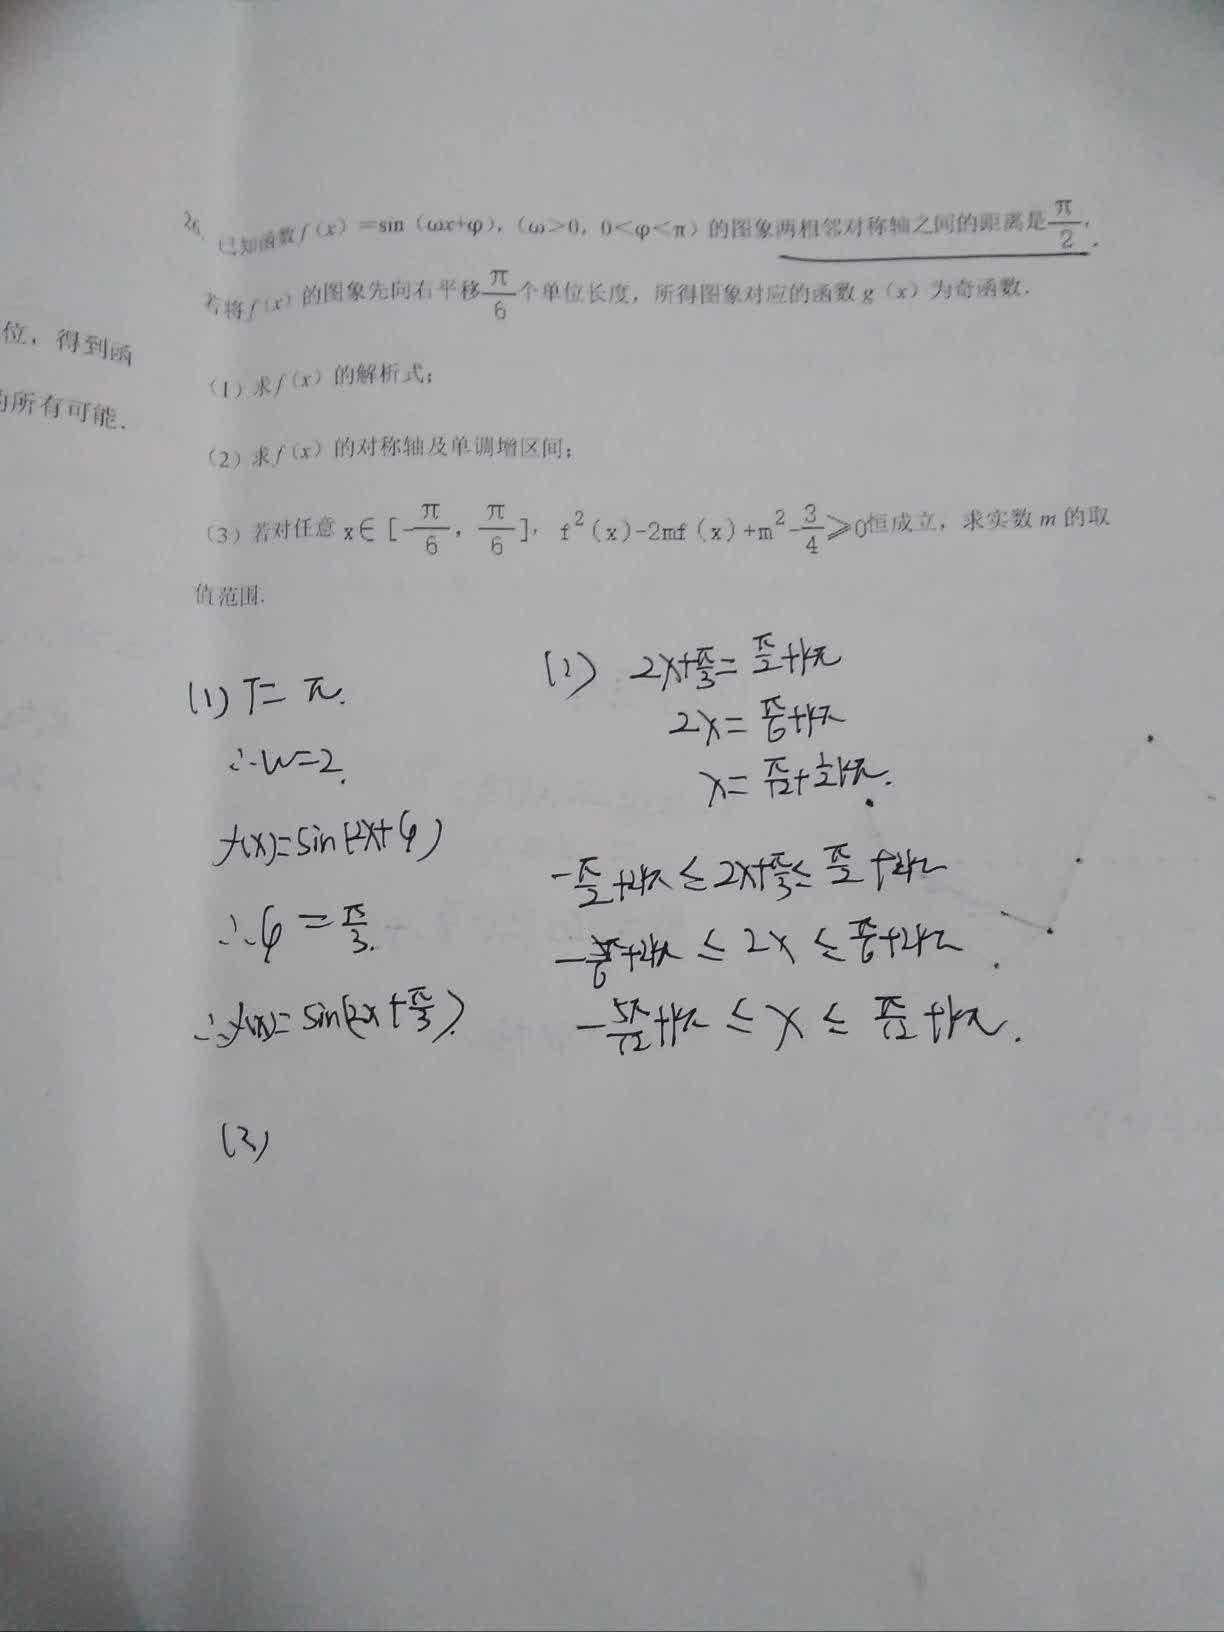 26. 已知函数f(x)=sin(ωx+φ),(ω>0,0<φ<π)的图象两相邻对称轴之间的距离是π/2,
若将f(x)的图象先向右平移π/6个单位长度,所得图象对应的函数g(x)为奇函数.
位,得到函
(1)求f(x)的解析式;
的所有可能.
(2)求f(x)的对称轴及单调增区间;
(3)若对任意x∈[-π/6,π/6],f²(x)-2mf(x)+m²-3/4≥0恒成立,求实数m的取
值范围.
(1) T=π.
∴w=2.
f(x)=sin(2x+φ)
∴φ=π/3.
∴f(x)=sin(2x+π/3).
(2) 2x+π/3=π/2+kπ
2x=π/6+kπ
x=π/12+1/2kπ.
-π/2+2kπ≤2x+π/3≤π/2+2kπ
-5π/6+2kπ≤2x≤π/6+2kπ
-5π/12+kπ≤x≤π/12+kπ.
(3)